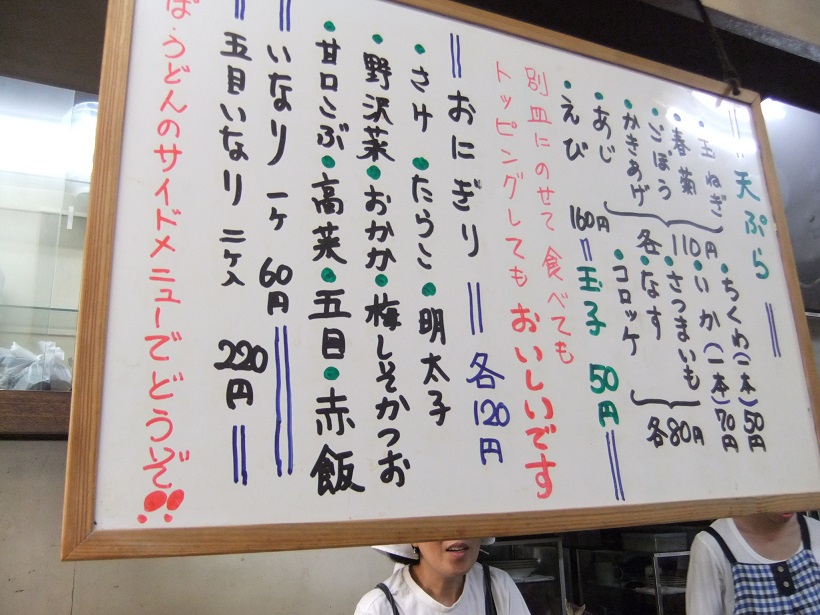 天ぷら
・玉ねぎ
・春菊
・ごぼう
・かきあげ
各110円
・あじ
・えび 160円
・ちくわ(一本)50円
・いか(一本)70円
・さつまいも
・なす
・コロッケ
各80円
玉子 50円
別皿にのせて食べても
トッピングしてもおいしいです
おにぎり 各120円
・さけ・たらこ・明太子
・野沢菜・おかか・梅しそかつお
・甘口こぶ・高菜・五目・赤飯
いなり 一ヶ 60円
五目いなり 二ヶ入 220円
ば・うどんのサイドメニューでどうぞ!!